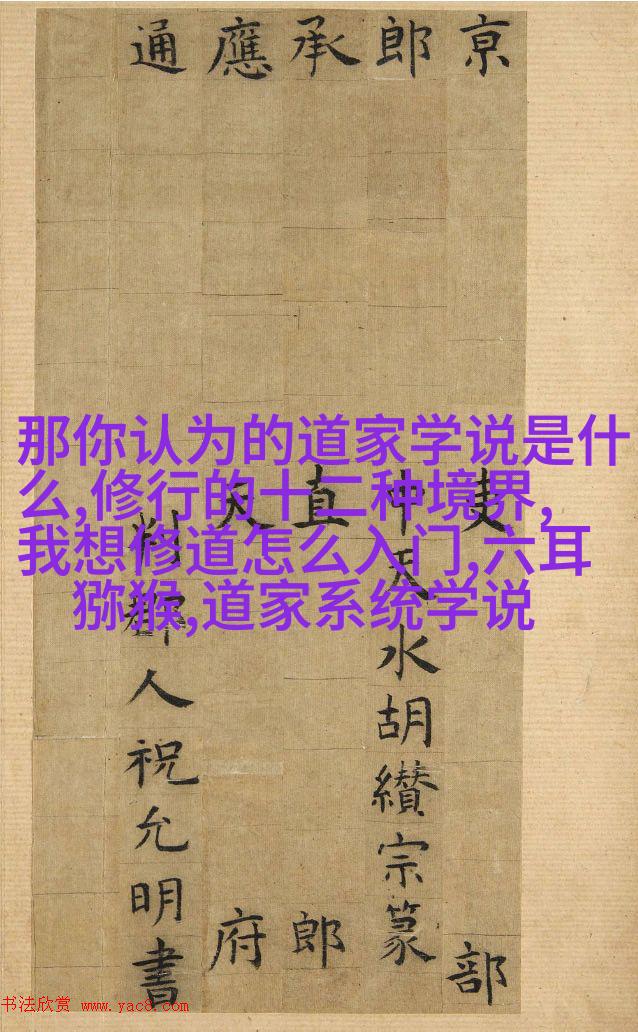 那你认为的道家学说是什
么,修行的十二种境界,
我想修道怎么入门,六耳
猕猴,道家系统学说
京吏部
郎中天水胡纘宗篆
承直郎
應天府
通判郡人祝允明書
书法欣赏 www.yac8.com